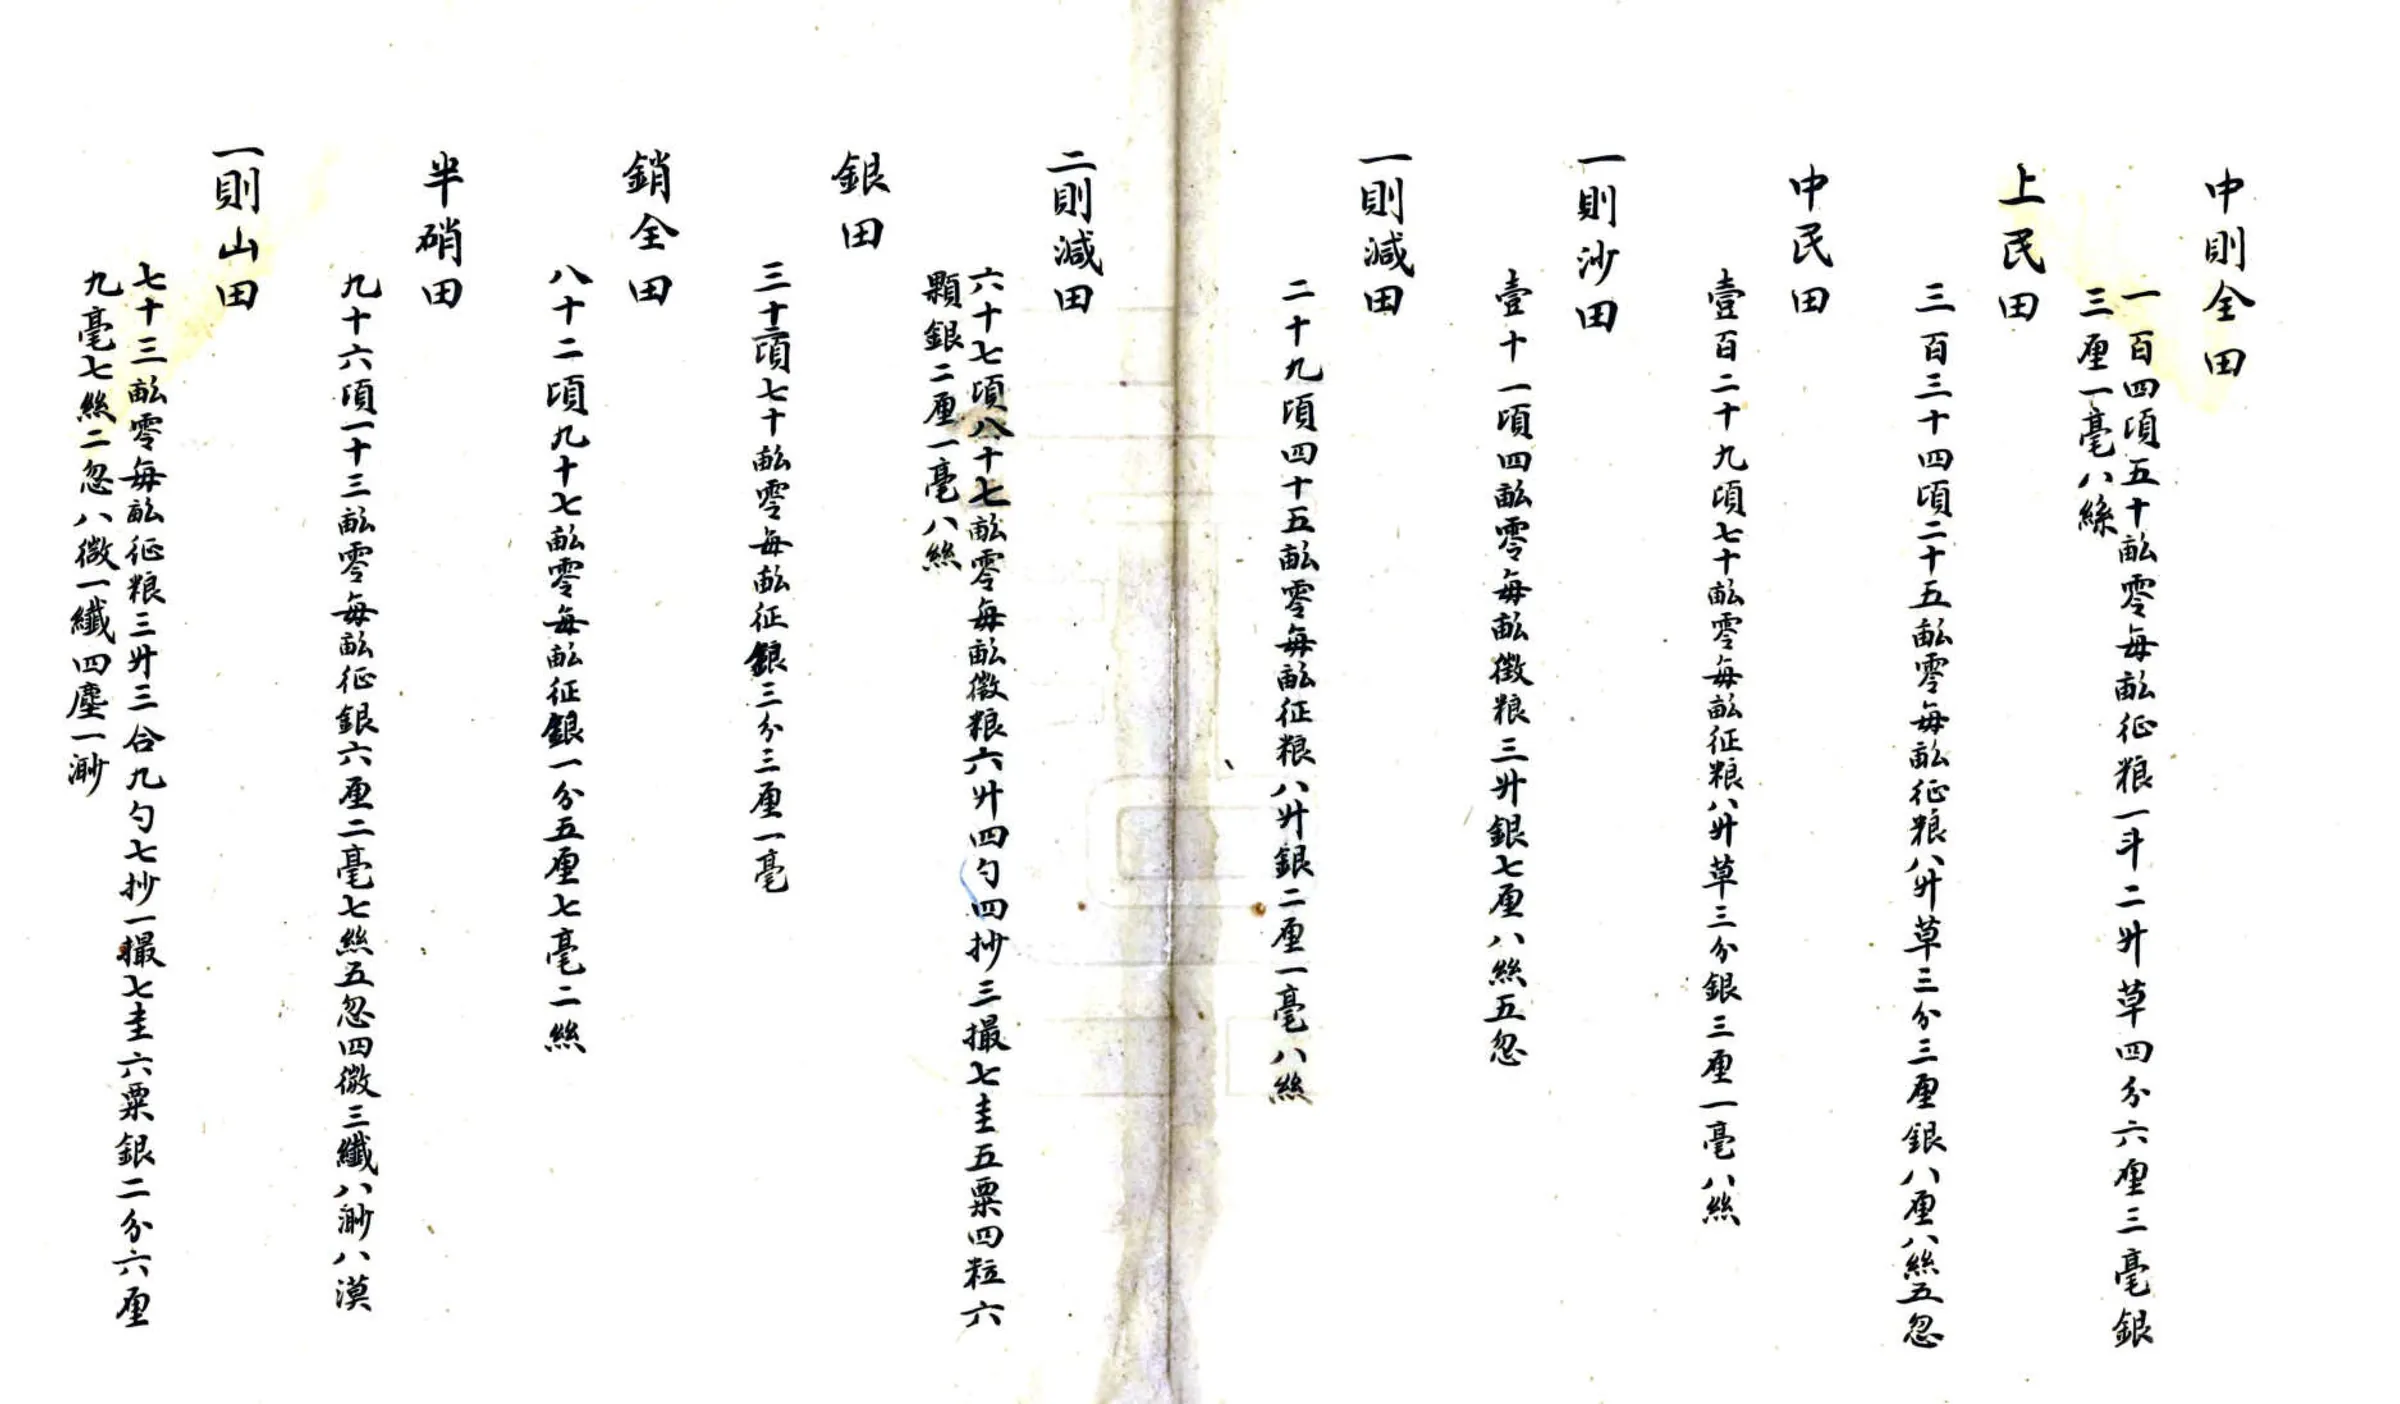 中則全田
一百四頃五十畝零每畝征粮一斗二升草四分六厘三毫銀
三厘一毫八絲
上民田
三百三十四頃二十五畝零每畝征粮八升草三分三厘銀八厘八絲五忽
中民田
壹百二十九頃七十畝零每畝征粮八升草三分銀三厘一毫八絲
一則沙田
壹十一頃四畝零每畝徵粮三升銀七厘八絲五忽
一則減田
二十九頃四十五畝零每畝征粮八升銀二厘一毫八絲
二則減田
六十七頃八十七畝零每畝徵粮六升四勺四抄三撮七圭五粟四粒六
顆銀二厘一毫八絲
銀田
三十二頃七十畝零每畝征銀三分三厘一毫
銷全田
八十二頃九十七畝零每畝征銀一分五厘七毫二絲
半硝田
九十六頃一十三畝零每畝征銀六厘二毫七絲五忽四微三纖八渺八漠
一則山田
七十三畝零每畝征粮三升三合九勺七抄一撮七圭六粟銀二分六厘
九毫七絲二忽八微一纖四塵一渺